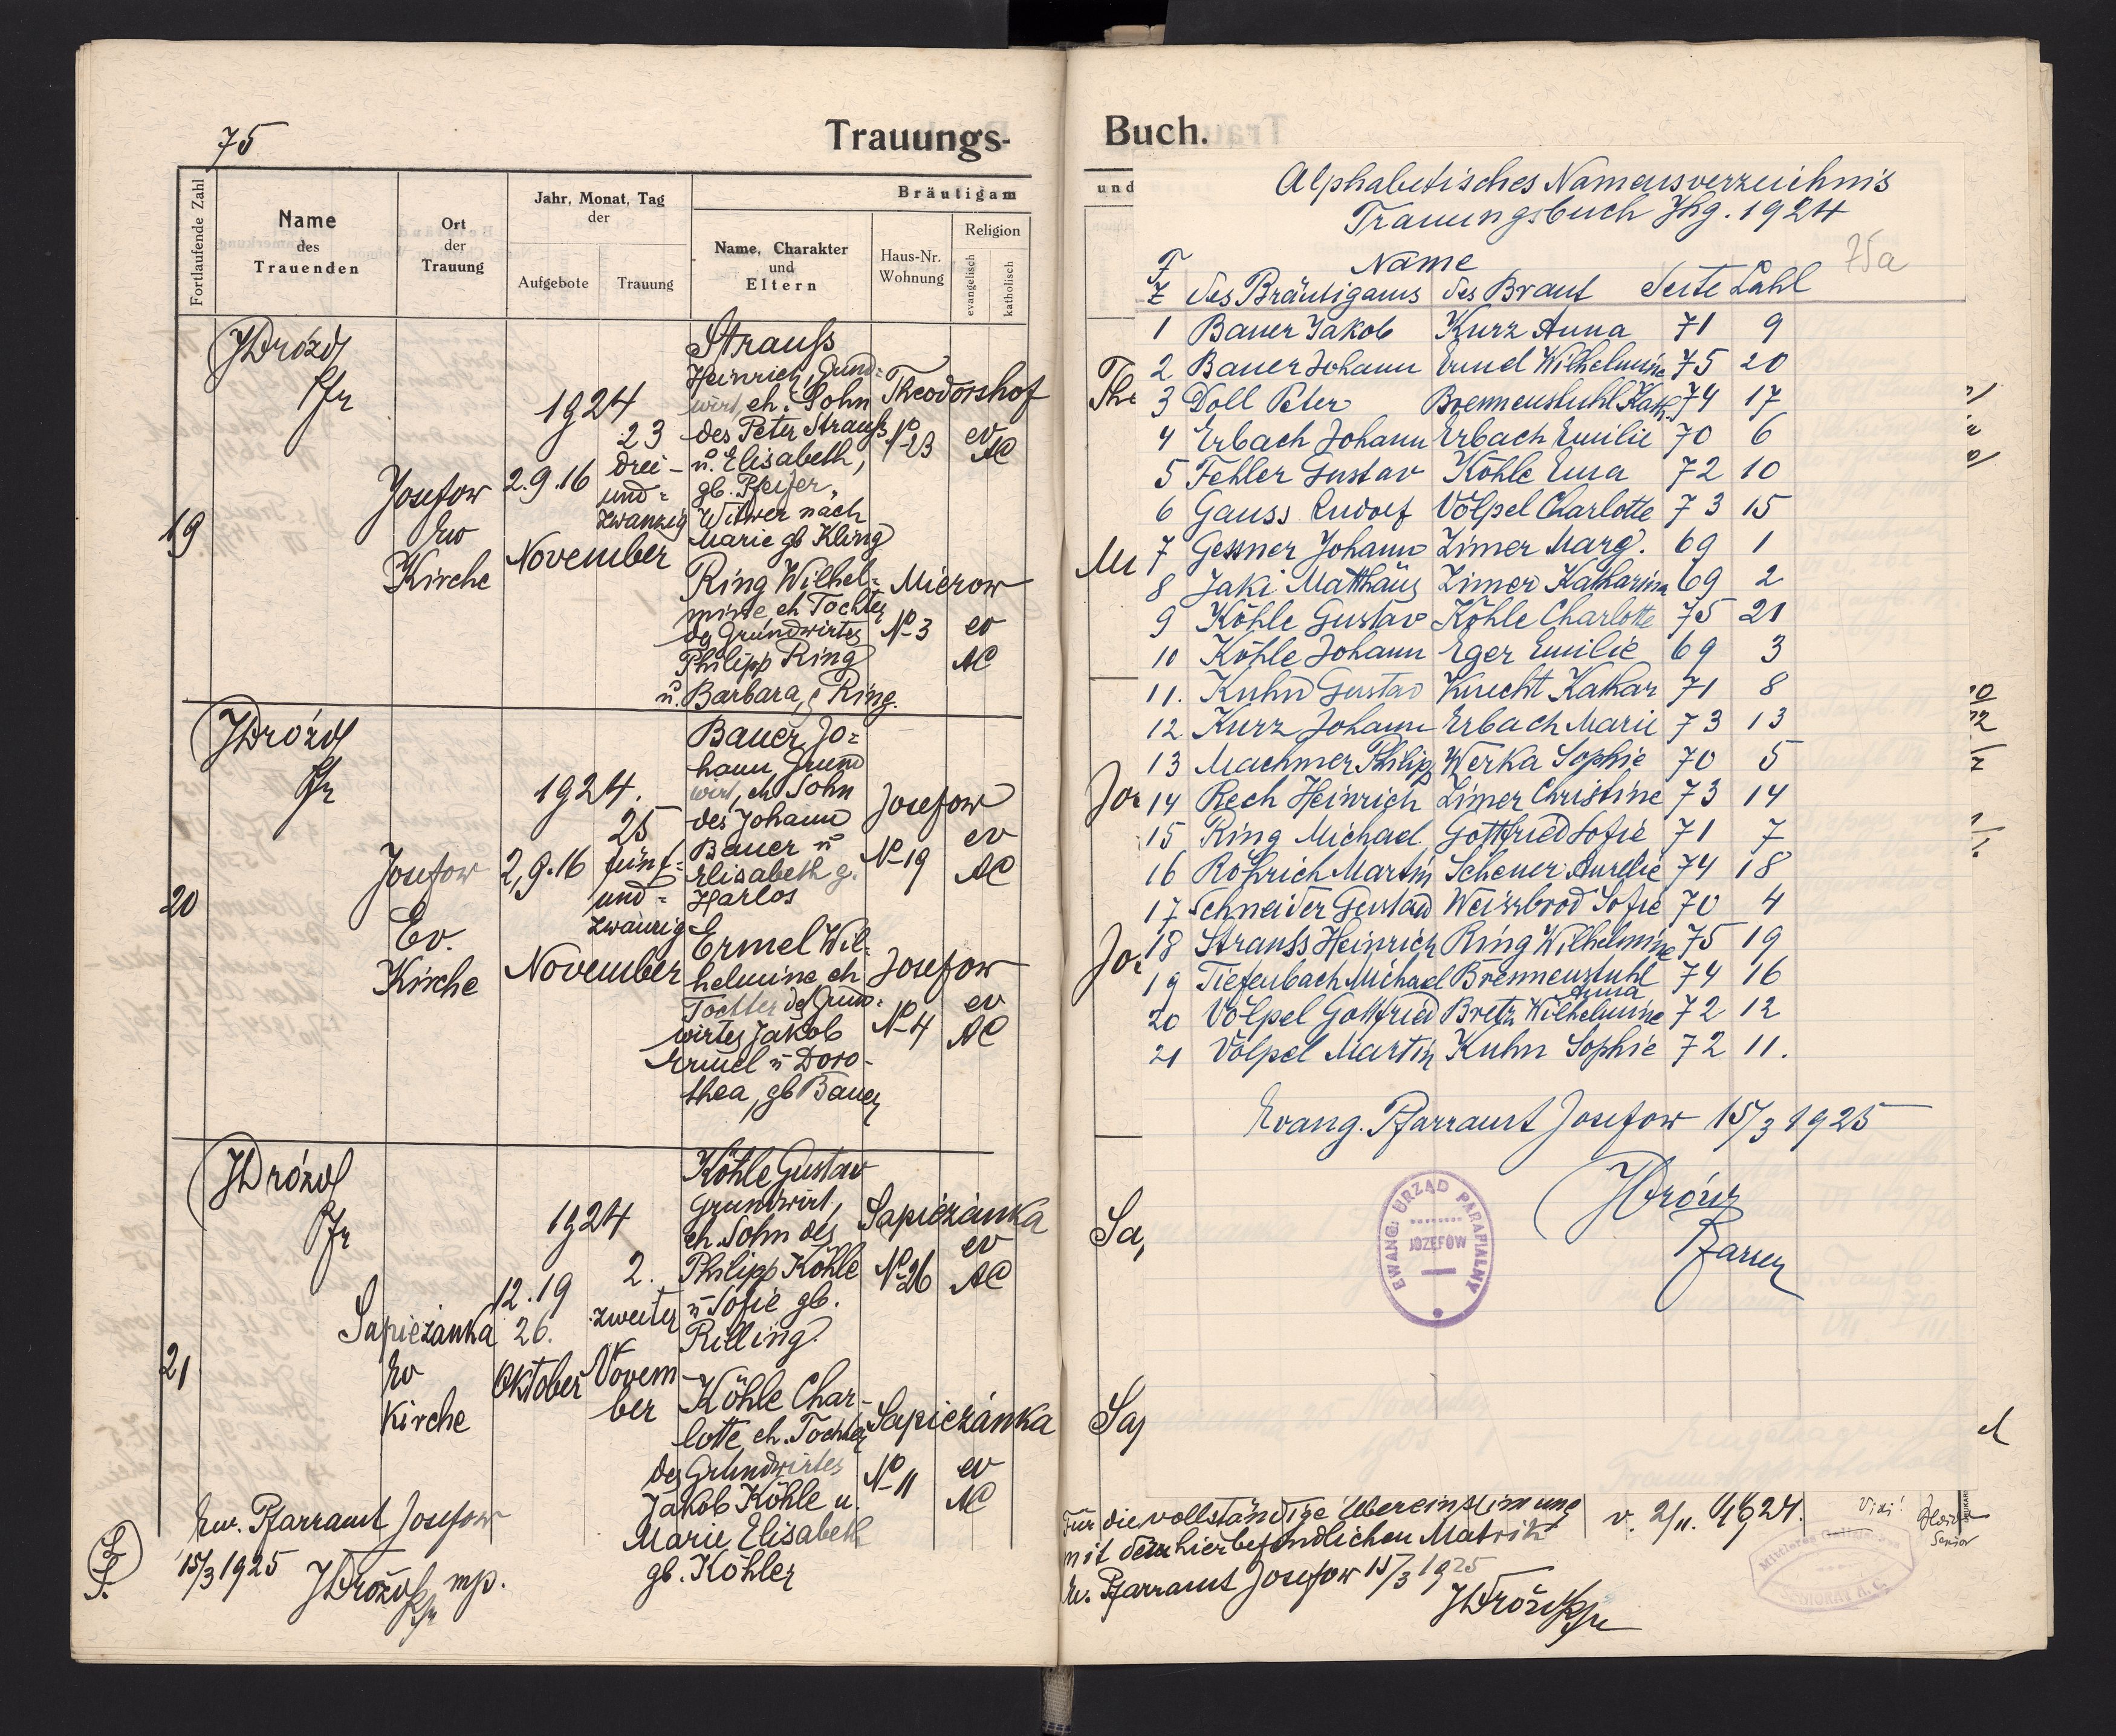 75
Trauungs-
Fortlaufende Zahl
Name
des
Trauenden
Ort
der
Trauung
Jahr, Monat, Tag
der
Aufgebote
Trauung
Bräutigam
Name, Charakter
und
Eltern
Haus-Nr.
Wohnung
Religion
evangelisch
katholisch
19
JDrózd
Pfr
Josefow
Ev
Kirche
1924
2.9.16
23
drei-
und=
zwanzig
November
Strauss
Heinrich, Grund=
wirt, eh. Sohn
des Peter Strauss
u. Elisabeth,
gb. Pfeifer,
Witwer nach
Marie gb Kling
Theodorshof
No 23
ev
AC
Ring Wilhel=
mine, eh Tochter
des Grundwirtes
Philipp Ring
u. Barbara, g Ring.
Mierow
No 3
ev
AC
20
JDrózd
Pfr
Josefow
Ev.
Kirche
1924.
2,9.16
25
fünf=
und=
zwanzig
November
Bauer Jo=
hann Grund
wirt, eh Sohn
des Johann
Bauer u
Elisabeth g.
Harlos
Josefow
No 19
ev
AC
Ermel Wil=
helmine eh
Tochter des Grund=
wirtes Jakob
Ermel u Doro-
thea, gb Bauer
Josefow
No 4
ev
AC
21
JDrózd
Pfr
Sapieżanka
Ev
Kirche
1924
12.19
26.
Oktober
2.
zweiter
Novem-
ber
Köhle Gustav
Grundwirt,
eh. Sohn des
Philipp Köhle
u Sofie gb.
Rilling
Sapieżanka
No 26
ev
AC
Köhle Char-
lotte eh. Tochter
des Grundwirtes
Jakob Köhle u.
Marie Elisabeth
gb. Köhler
Sapieżanka
No 11
ev
AC
Ew. Pfarramt Josefow
15/3 1925 JDrózd Pfr mp.
L.
S.
Buch.
und
Alphabetisches Namensverzeichnis
Trauungsbuch Jhg. 1924
75a
Name
F
Z des Bräutigams des Braut Seite Zahl
1 Bauer Jakob Kurz Anna 71 9
2 Bauer Johann Ermel Wilhelmine 75 20
3 Doll Peter Brennenstuhl Kath. 74 17
4 Erbach Johann Erbach Emilie 70 6
5 Fehler Gustav Köhle Ema 72 10
6 Gauss Rudolf Völpel Charlotte 73 15
7 Gessner Johann Zimer Marg. 69 1
8 Jaki Matthäus Zimer Katharina 69 2
9 Köhle Gustav Köhle Charlotte 75 21
10 Köhle Johann Eger Emilie 69 3
11. Kuhn Gustav Knecht Kathar 71 8
12 Kurz Johann Erbach Marie 73 13
13 Machmer Philipp Werka Sophie 70 5
14 Rech Heinrich Zimer Christine 73 14
15 Ring Michael Gottfried Sofie 71 7
16 Röhrich Martin Scheuer Aurelie 74 18
17 Schneider Gustav Weissbrod Sofie 70 4
18 Strauss Heinrich Ring Wilhelmine 75 19
19 Tiefenbach Michael Brennenstuhl Anna 74 16
20 Völpel Gottfried Bretz Wilhelmine 72 12
21 Völpel Martin Kuhn Sophie 72 11.
Evang. Pfarramt Josefow 15/3 1925
JDrózd
Pfarrer
EWANG. URZĄD PARAFIALNY
JÓZEFÓW
Für die vollständige Übereinstimmung
mit der hierbefindlichen Matrik
Ev. Pfarramt Josefow 15/3 1925
JDrózd Pfr
v. 2/11. 1924.
Vidi!
Senior
Mittleres Galizisches
SENIORAT A. C.